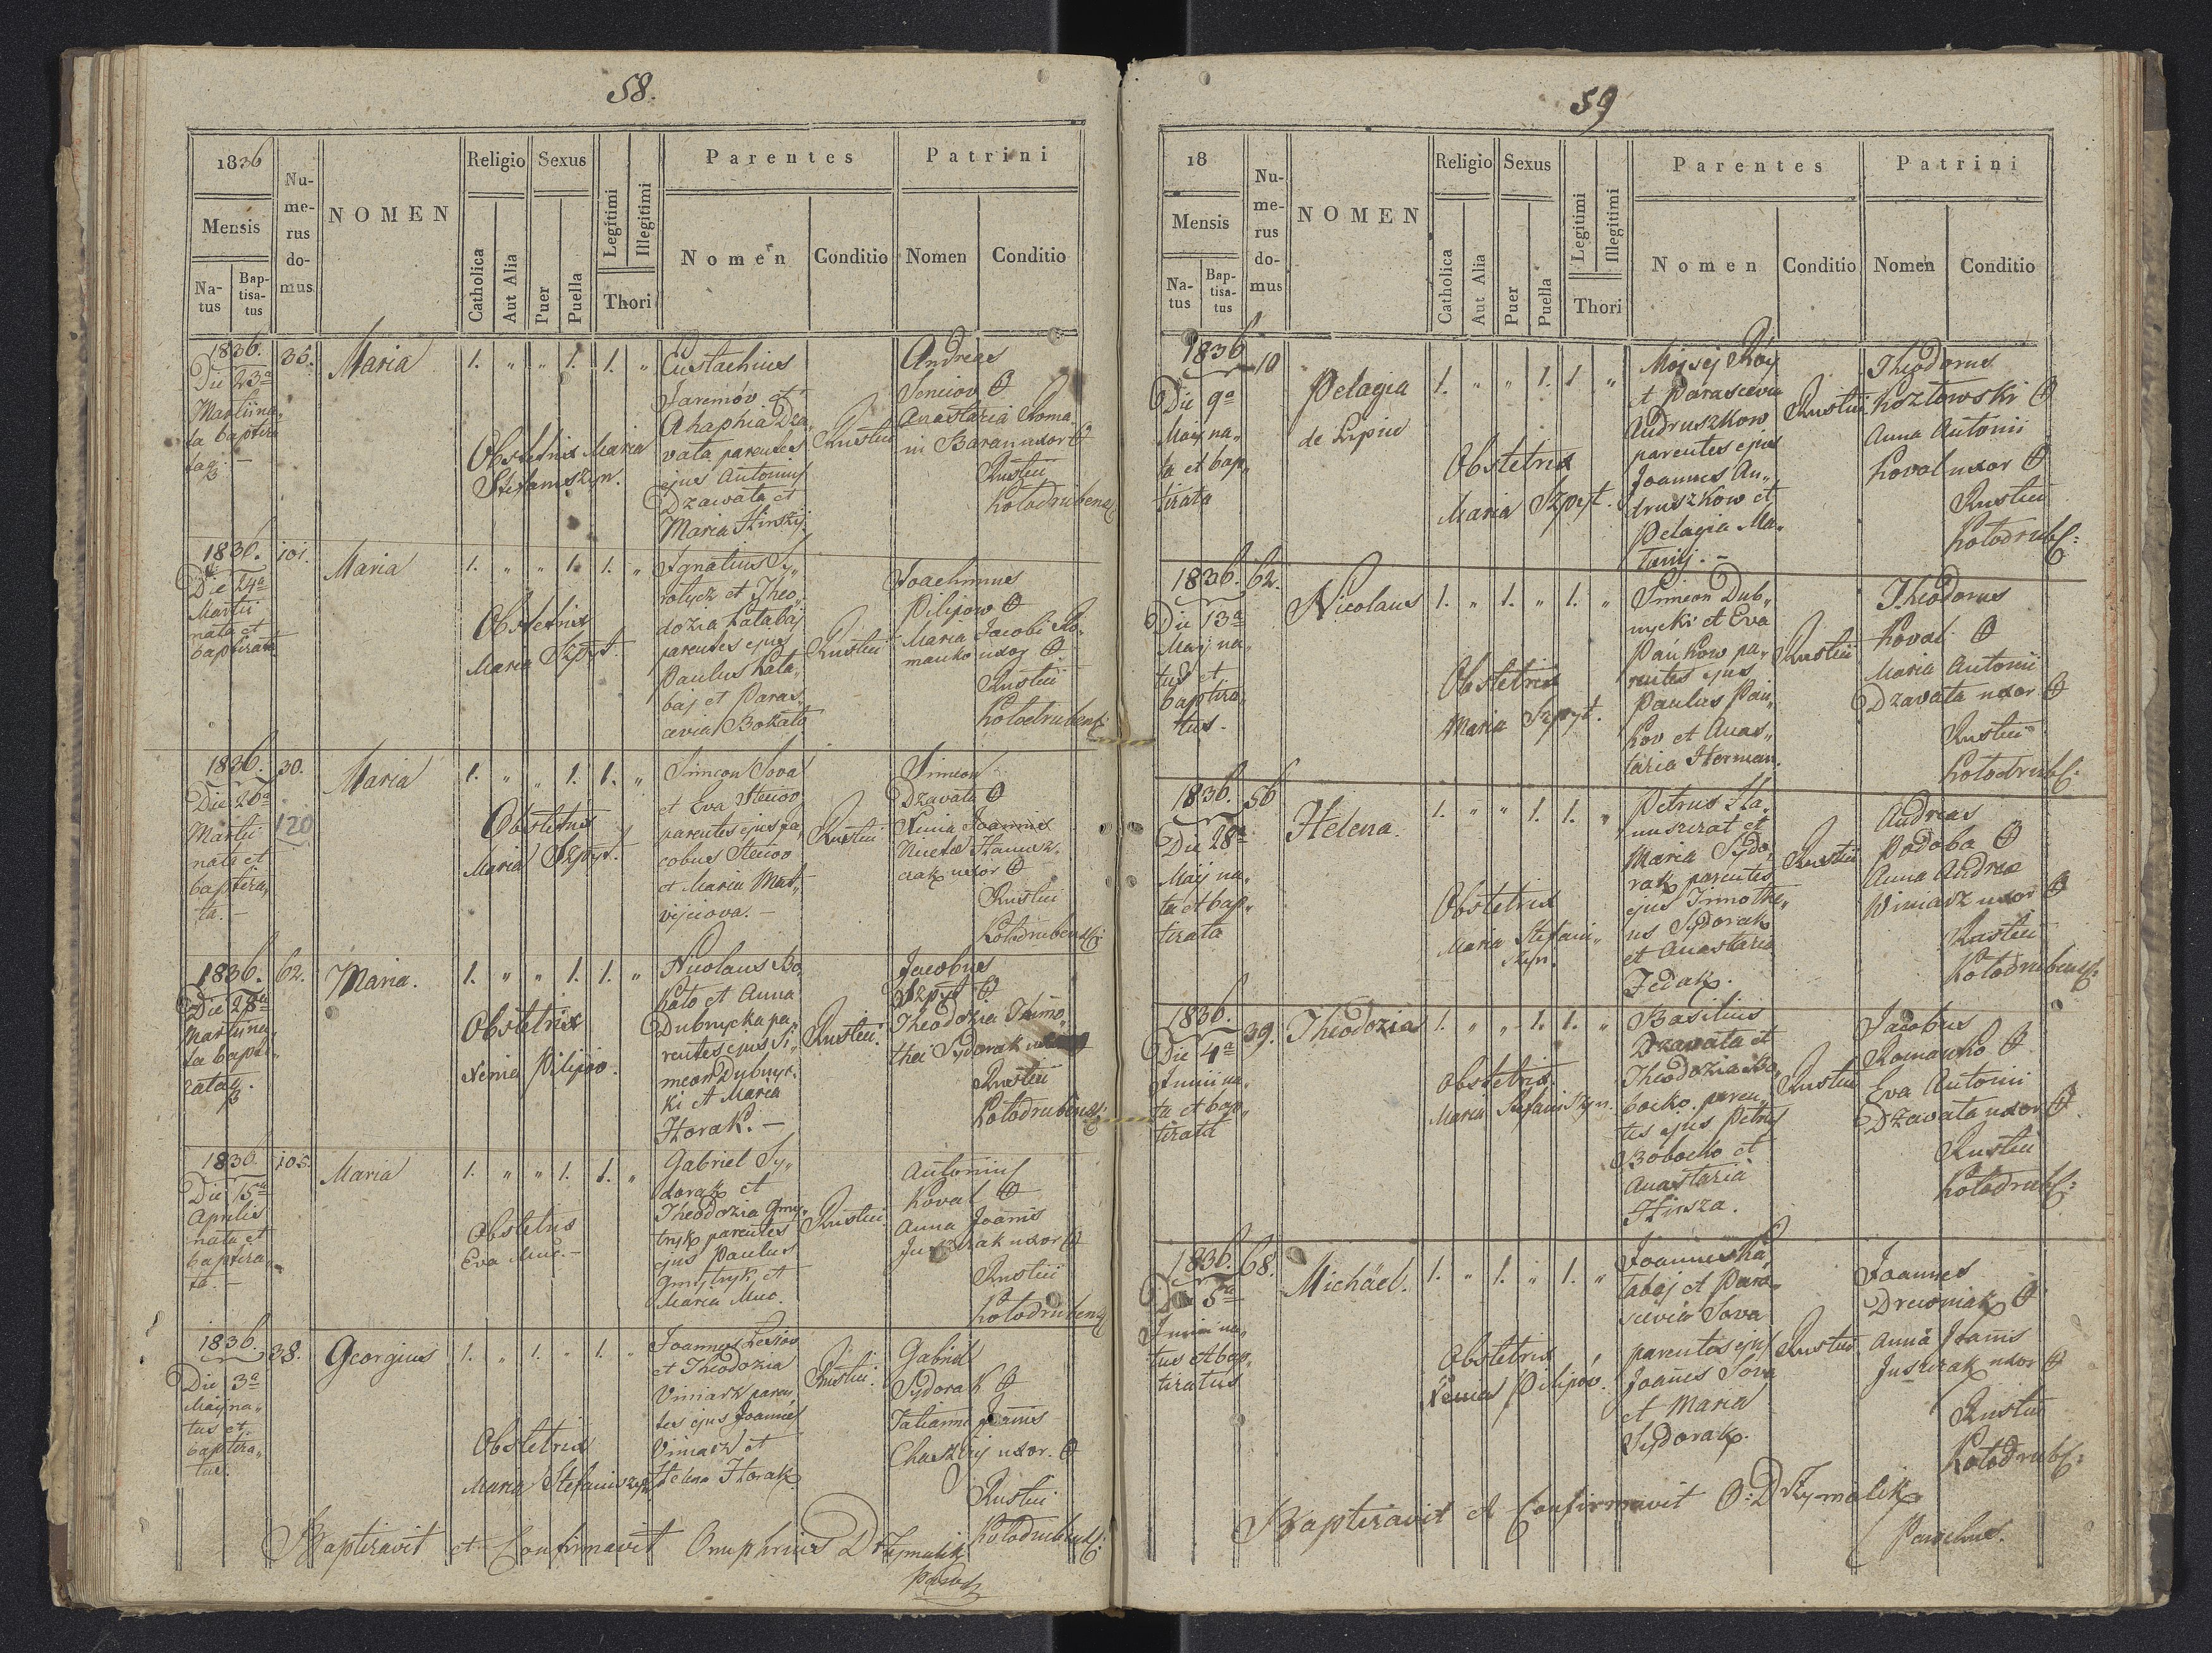 58.
1836
Mensis
Na-
tus
Bap-
tisa-
tus
Nu-
me-
rus
do-
mus
NOMEN
Religio
Catholica
Aut Alia
Sexus
Puer
Puella
Legitimi
Illegitimi
Thori
Parentes
Nomen
Conditio
Patrini
Nomen
Conditio
1836.
Die 23a
Martii na„
ta baptiza
36.
Maria
1. „ „ 1. 1. „
Obstetrix Maria
Eustachius
Jaremów et
Ahaphia Dza„
vata parentes
ejus Antonius
Dzawata et
Maria
Rustici
Andreas
Senciov
Anastazia Roma
ni Baran uxor
Rustici
Kołodrubens
1836.
Die 24a
Martii
nata et
baptizata
101.
Maria
1. „ „ 1. 1. „
Obstetrix
Maria Szpyt.
Ignatius Sy„
rotycz et Theo„
dozia Hatabaj
parentes ejus
Paulus Hata„
baj et Paras„
cevia Bokata
Rustici
Joachimus
Pilipow
Maria Jacobi Ro„
manko uxor
Rustici
Kołodrubens
1836.
Die 26a
Martii
nata et
baptiza„
ta. –
30.
120
Maria
1. „ „ 1. 1. „
Obstetrix
Maria Szpyt.
Simeon Sova
et Eva Steciov
parentes ejus Ja„
cobus Steciov
et Maria Mat„
vijciova. –
Rustici
Simeon
Dzavata
Xenia Joannis
uxor
Rustici
Kołodrubens:
1836.
Die 28a
Martij na„
ta bapti„
zata
62.
Maria.
1. „ „ 1. 1. „
Obstetrix
Xenia Pilipiv.
Nicolaus Bo„
kato et Anna
Dubnycka pa„
rentes ejus Si„
meon Dubnyc„
ki et Maria
Horak. –
Rustici.
Jacobus
Szpyt
Theodozia Timo„
thei Sydorak
Rustici
Kołodrubens:
1836
Die 15a
Aprilis
nata et
baptiza„
ta. –
105.
Maria
1. „ „ 1. 1. „
Obstetrix
Eva Muc. –
Gabriel Sy„
dorak et
Theodozia Gmy„
tryk parentes
ejus Paulus
Gmytryk et
Maria Muc.
Rustici
Antonius
Koval
Anna Joannis
Juszczak uxor
Rustici
Kołodrubens
1836.
Die 3a
Maij na„
tus et
baptiza„
tus.
38.
Georgius
1. „ 1. „ 1. „
Obstetrix
Maria Stefaniszyn
Joannes Lesiov
et Theodozia
Viniarz paren„
tes ejus Joannes
Viniarz et
Helena Horak
Rustici.
Gabriel
Sydorak
Tatianna Joannis
uxor.
Rustici
Kołodrubens:
Baptizavit et Confirmavit Onuphrius Drzymalik
59
18
Mensis
Na-
tus
Bap-
tisa-
tus
Nu-
me-
rus
do-
mus
NOMEN
Religio
Catholica
Aut Alia
Sexus
Puer
Puella
Legitimi
Illegitimi
Thori
Parentes
Nomen
Conditio
Patrini
Nomen
Conditio
1836
Die 9a
Maij na„
ta et bap„
tizata
10
Pelagia
1. „ „ 1. 1 „
Obstetrix
Maria Szpyt.
Mojsej Róÿ
et Parascevia
Andruszkow
parentes ejus
Joannes An„
druszkow et
Pelagia
Rustici
Theodorus
Kozłowski
Anna Antonii
Koval uxor
Rustici
Kołodrubs:
1836.
Die 13a
Maij na„
tus et
baptiza„
tus.
62.
Nicolaus
1. „ 1. „ 1. „
Obstetrix
Maria Szpyt.
Simeon Dub„
nycki et Eva
Pańkow pa„
rentes ejus
Paulus Pań„
kov et Anas„
tazia Herman.
Rustici
Theodorus
Koval
Maria Antonii
Dzavata uxor
Rustici
Kołodrubs:
1836.
Die 28a
Maij na„
ta et bap„
tizata
56
Helena.
1. „ „ 1. 1. „
Obstetrix
Maria Stefani„
szyn.
Petrus Ha„
et
Maria Sydo„
rak parentes
ejus Timothe„
us Sydorak
et Anastazia
Fedak.
Rustici
Andreas
Podoba
Anna Andreæ
Winiarz uxor
Rustici
Kołodrubens:
1836.
Die 4a
Junii na„
ta et bap„
tizata
39.
Theodozia
1. „ „ 1. 1. „
Obstetrix
Maria Stefaniszyn.
Basilius
Dzavata et
Theodozia Bo„
bocko paren„
tes ejus Petrus
Bobocko et
Anastazia
Hinsza.
Rustici
Jacobus
Romanko
Eva Antonii
Dzavata uxor
Rustici
Kołodrubs:
1836.
Die 5a
Junii na„
tus et bap„
tizatus
68.
Michäel.
1. „ 1. „ 1. „
Obstetrix
Xenia Pilipov.
Joannes Ha„
tabaj et Para„
scevia Sova
parentes ejus
Joannes Sova
et Maria
Sydorak.
Rustici
Joannes
Drewniak
Anna Joannis
Juszczak uxor
Rustici
Kołodrubs:
Baptizavit et Confirmavit O: Drzymalik
Parochus.